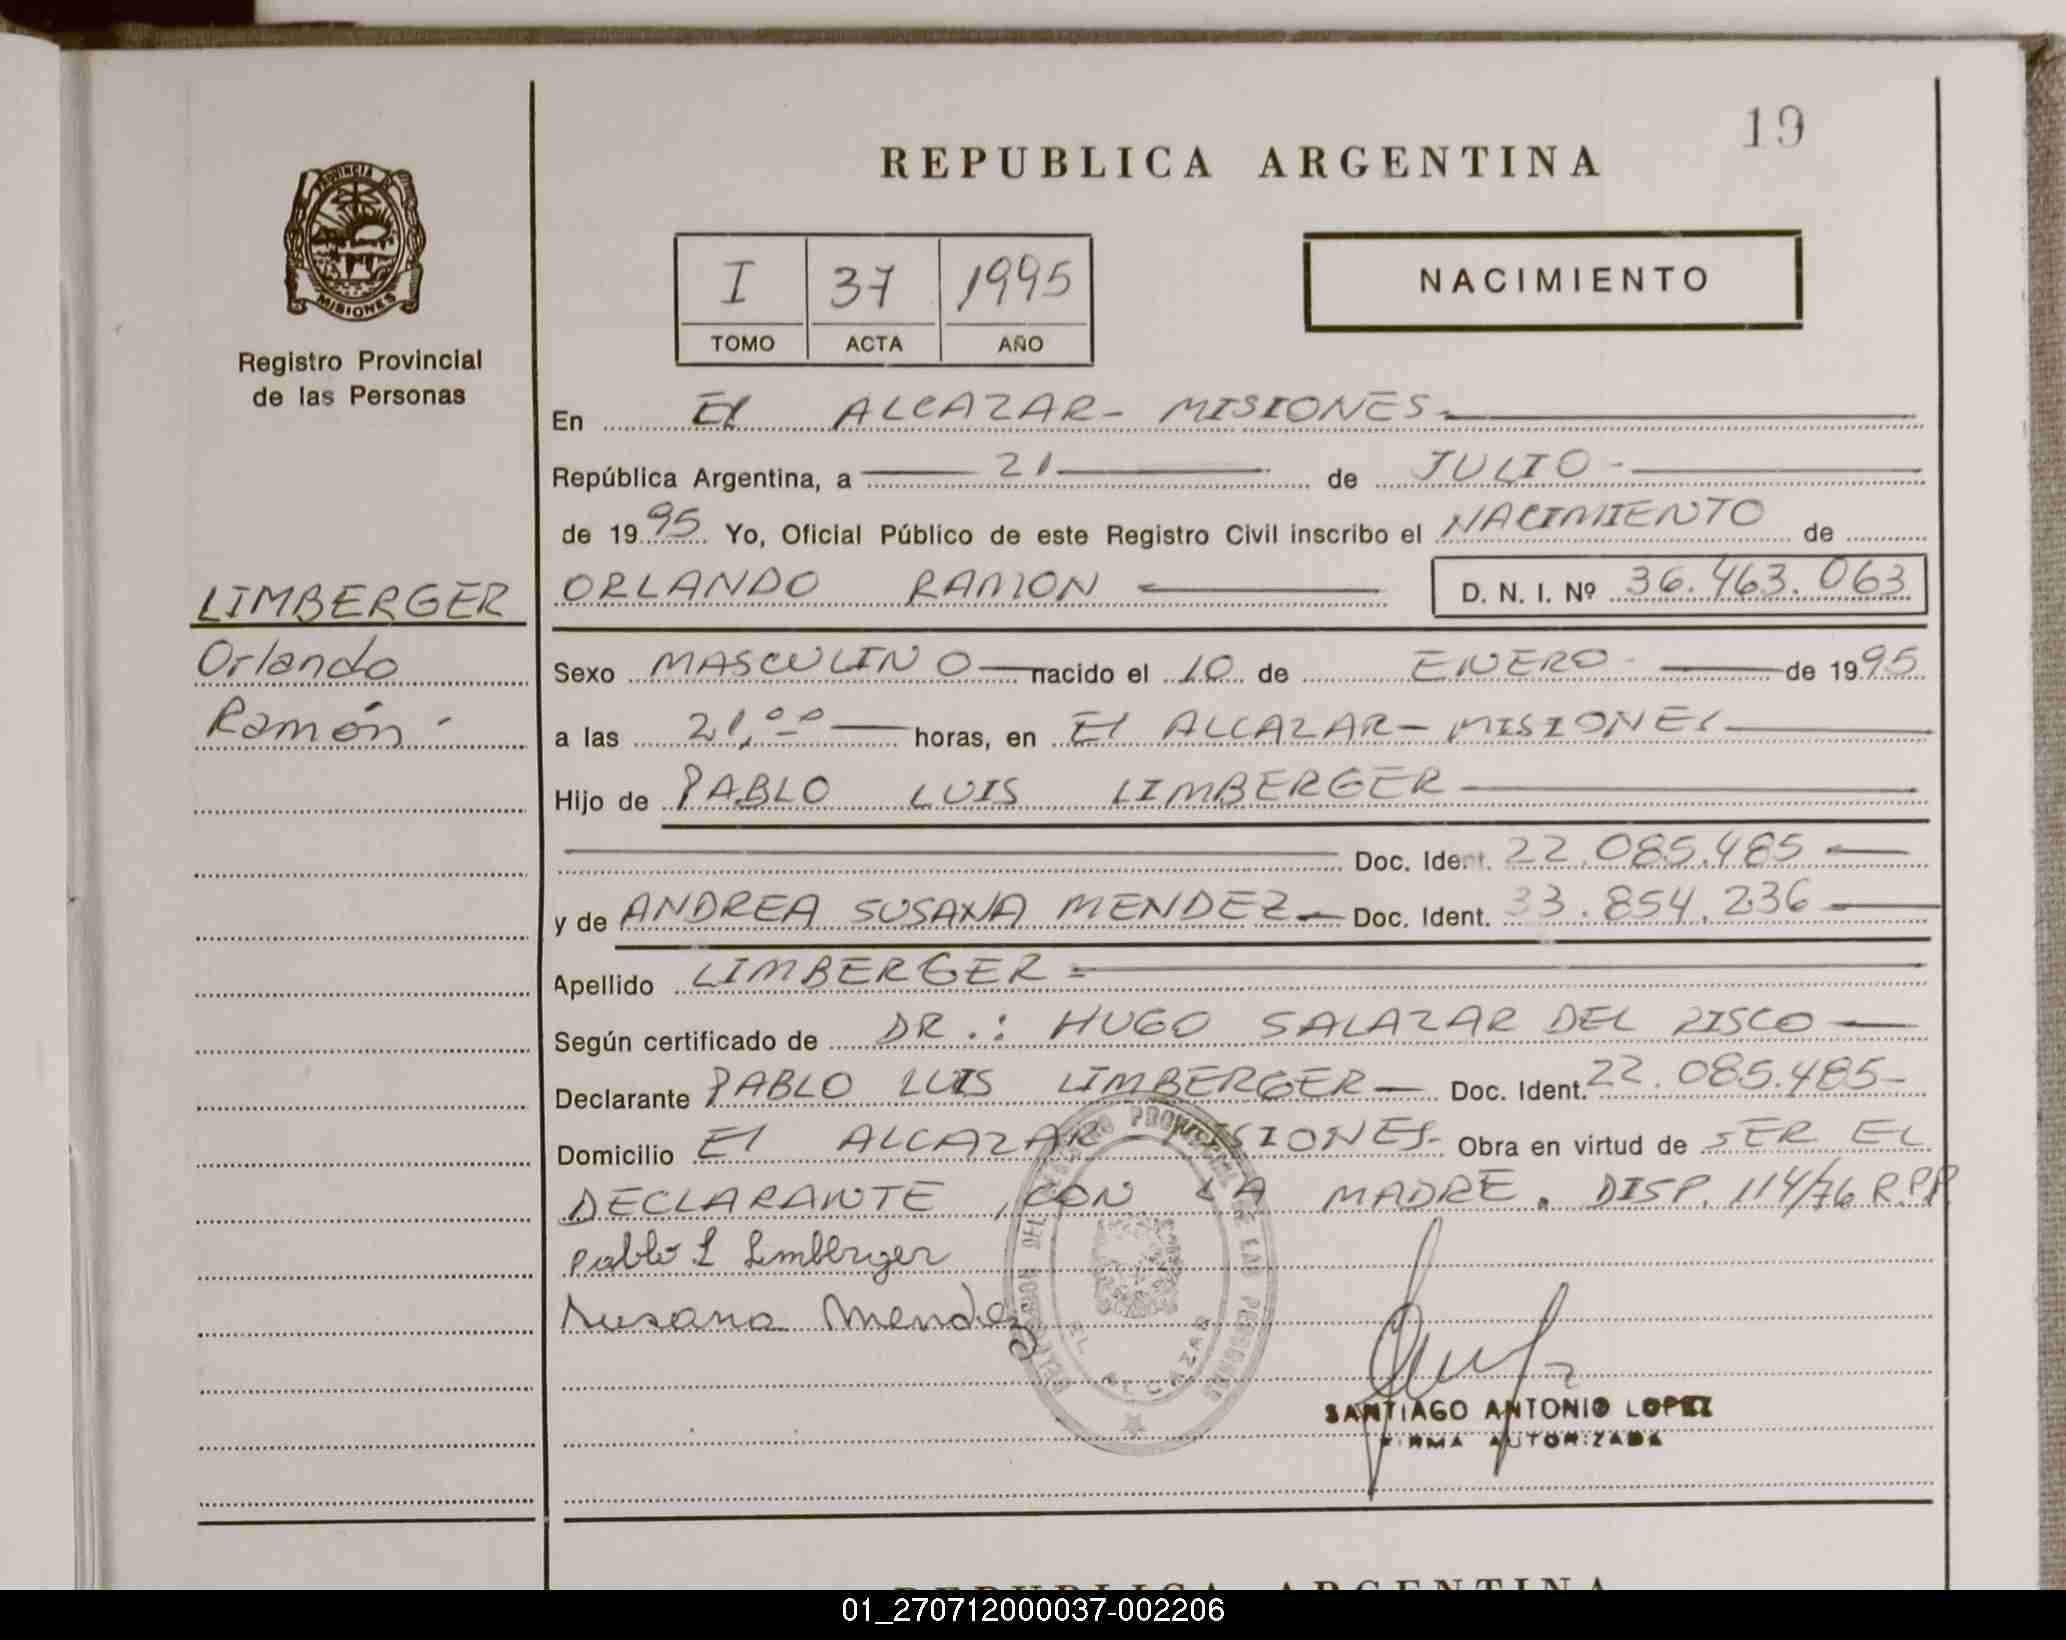 19
REPUBLICA ARGENTINA
PROVINCIA DE
MISIONES
Registro Provincial
de las Personas
I 37 1995
TOMO ACTA AÑO
NACIMIENTO
En El ALCAZAR - MISIONES.
República Argentina, a 21 de JULIO -
de 1995 Yo, Oficial Público de este Registro Civil inscribo el NACIMIENTO de
LIMBERGER
Orlando
Ramón -
ORLANDO RAMON D. N. I. Nº 36.463.063
Sexo MASCULINO nacido el 10 de ENERO - de 1995
a las 21,00 horas, en El ALCAZAR - MISIONES
Hijo de PABLO LUIS LIMBERGER
Doc. Ident. 22.085.485
y de ANDREA SUSANA MENDEZ Doc. Ident. 33.854.236
Apellido LIMBERGER
Según certificado de DR.: HUGO SALAZAR DEL RISCO
Declarante PABLO LUIS LIMBERGER Doc. Ident. 22.085.485-
Domicilio El ALCAZAR MISIONES- Obra en virtud de SER EL
DECLARANTE, CON LA MADRE. DISP. 114/76 R.P.P.
Pablo L Limberger
Susana Mendez
DELEGACION DEL REGISTRO PROVINCIAL DE LAS PERSONAS
EL ALCAZAR
SANTIAGO ANTONIO LOPEZ
FIRMA AUTORIZADA
REPUBLICA ARGENTINA
01_270712000037-002206